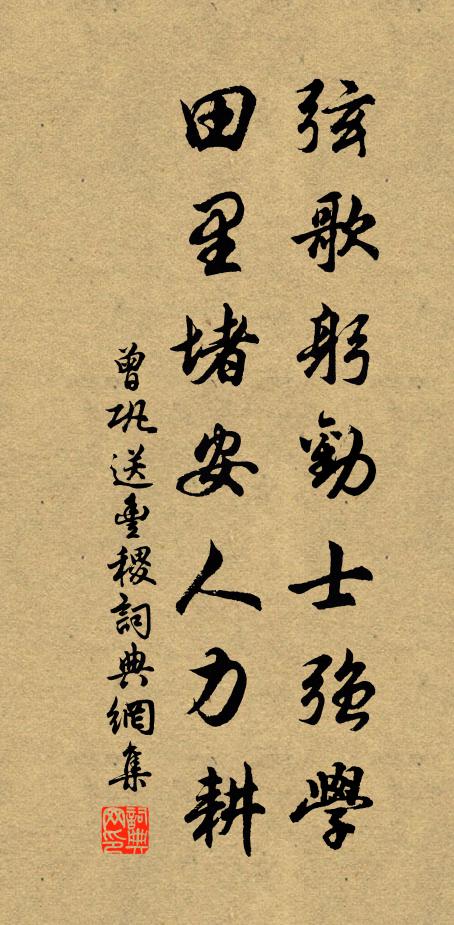 弦歌躬勸士強學
田里堵安人力耕
曾巩送豐稷詞典網集
詞典網印